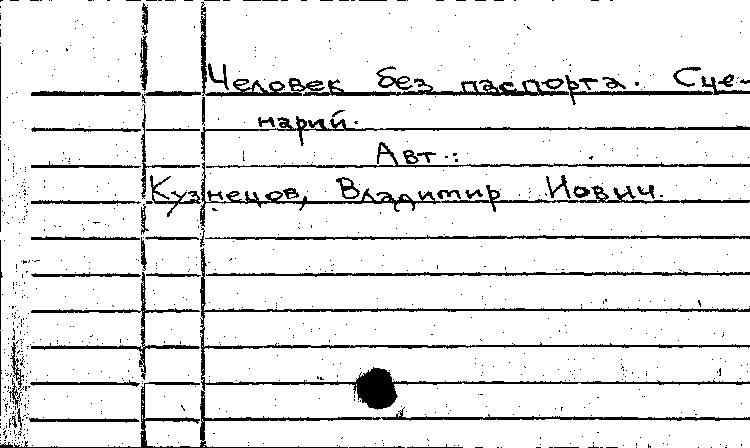 Человек без паспорта. Сце-
нарий.
Авт.:
Кузнецов, Владимир Иович.